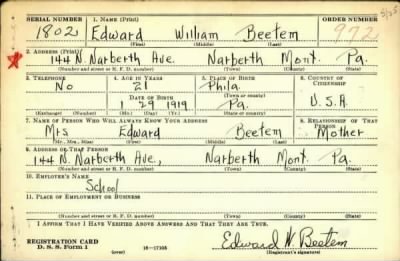 SERIAL NUMBER 1. NAME (Print) ORDER NUMBER
1802 Edward William Beetem 972
(First) (Middle) (Last)
2. ADDRESS (Print)
144 N. Narberth Ave. Narberth Mont. Pa.
(Number and street or R. F. D. number) (Town) (County) (State)
3. TELEPHONE 4. AGE IN YEARS 5. PLACE OF BIRTH 6. COUNTRY OF CITIZENSHIP
No 21 Phila.
DATE OF BIRTH (Town or county)
1 29 1919 Pa. U.S.A.
(Exchange) (Number) (Mo.) (Day) (Yr.) (State or country)
7. NAME OF PERSON WHO WILL ALWAYS KNOW YOUR ADDRESS 8. RELATIONSHIP OF THAT PERSON
Mrs Edward Beetem Mother
(Mr., Mrs., Miss) (First) (Middle) (Last)
9. ADDRESS OF THAT PERSON
144 N. Narberth Ave., Narberth Mont. Pa.
(Number and street or R. F. D. number) (Town) (County) (State)
10. EMPLOYER'S NAME
School
11. PLACE OF EMPLOYMENT OR BUSINESS
(Number and street or R. F. D. number) (Town) (County) (State)
I AFFIRM THAT I HAVE VERIFIED ABOVE ANSWERS AND THAT THEY ARE TRUE.
REGISTRATION CARD
D. S. S. Form 1 (over) Edward W. Beetem
(Registrant's signature)